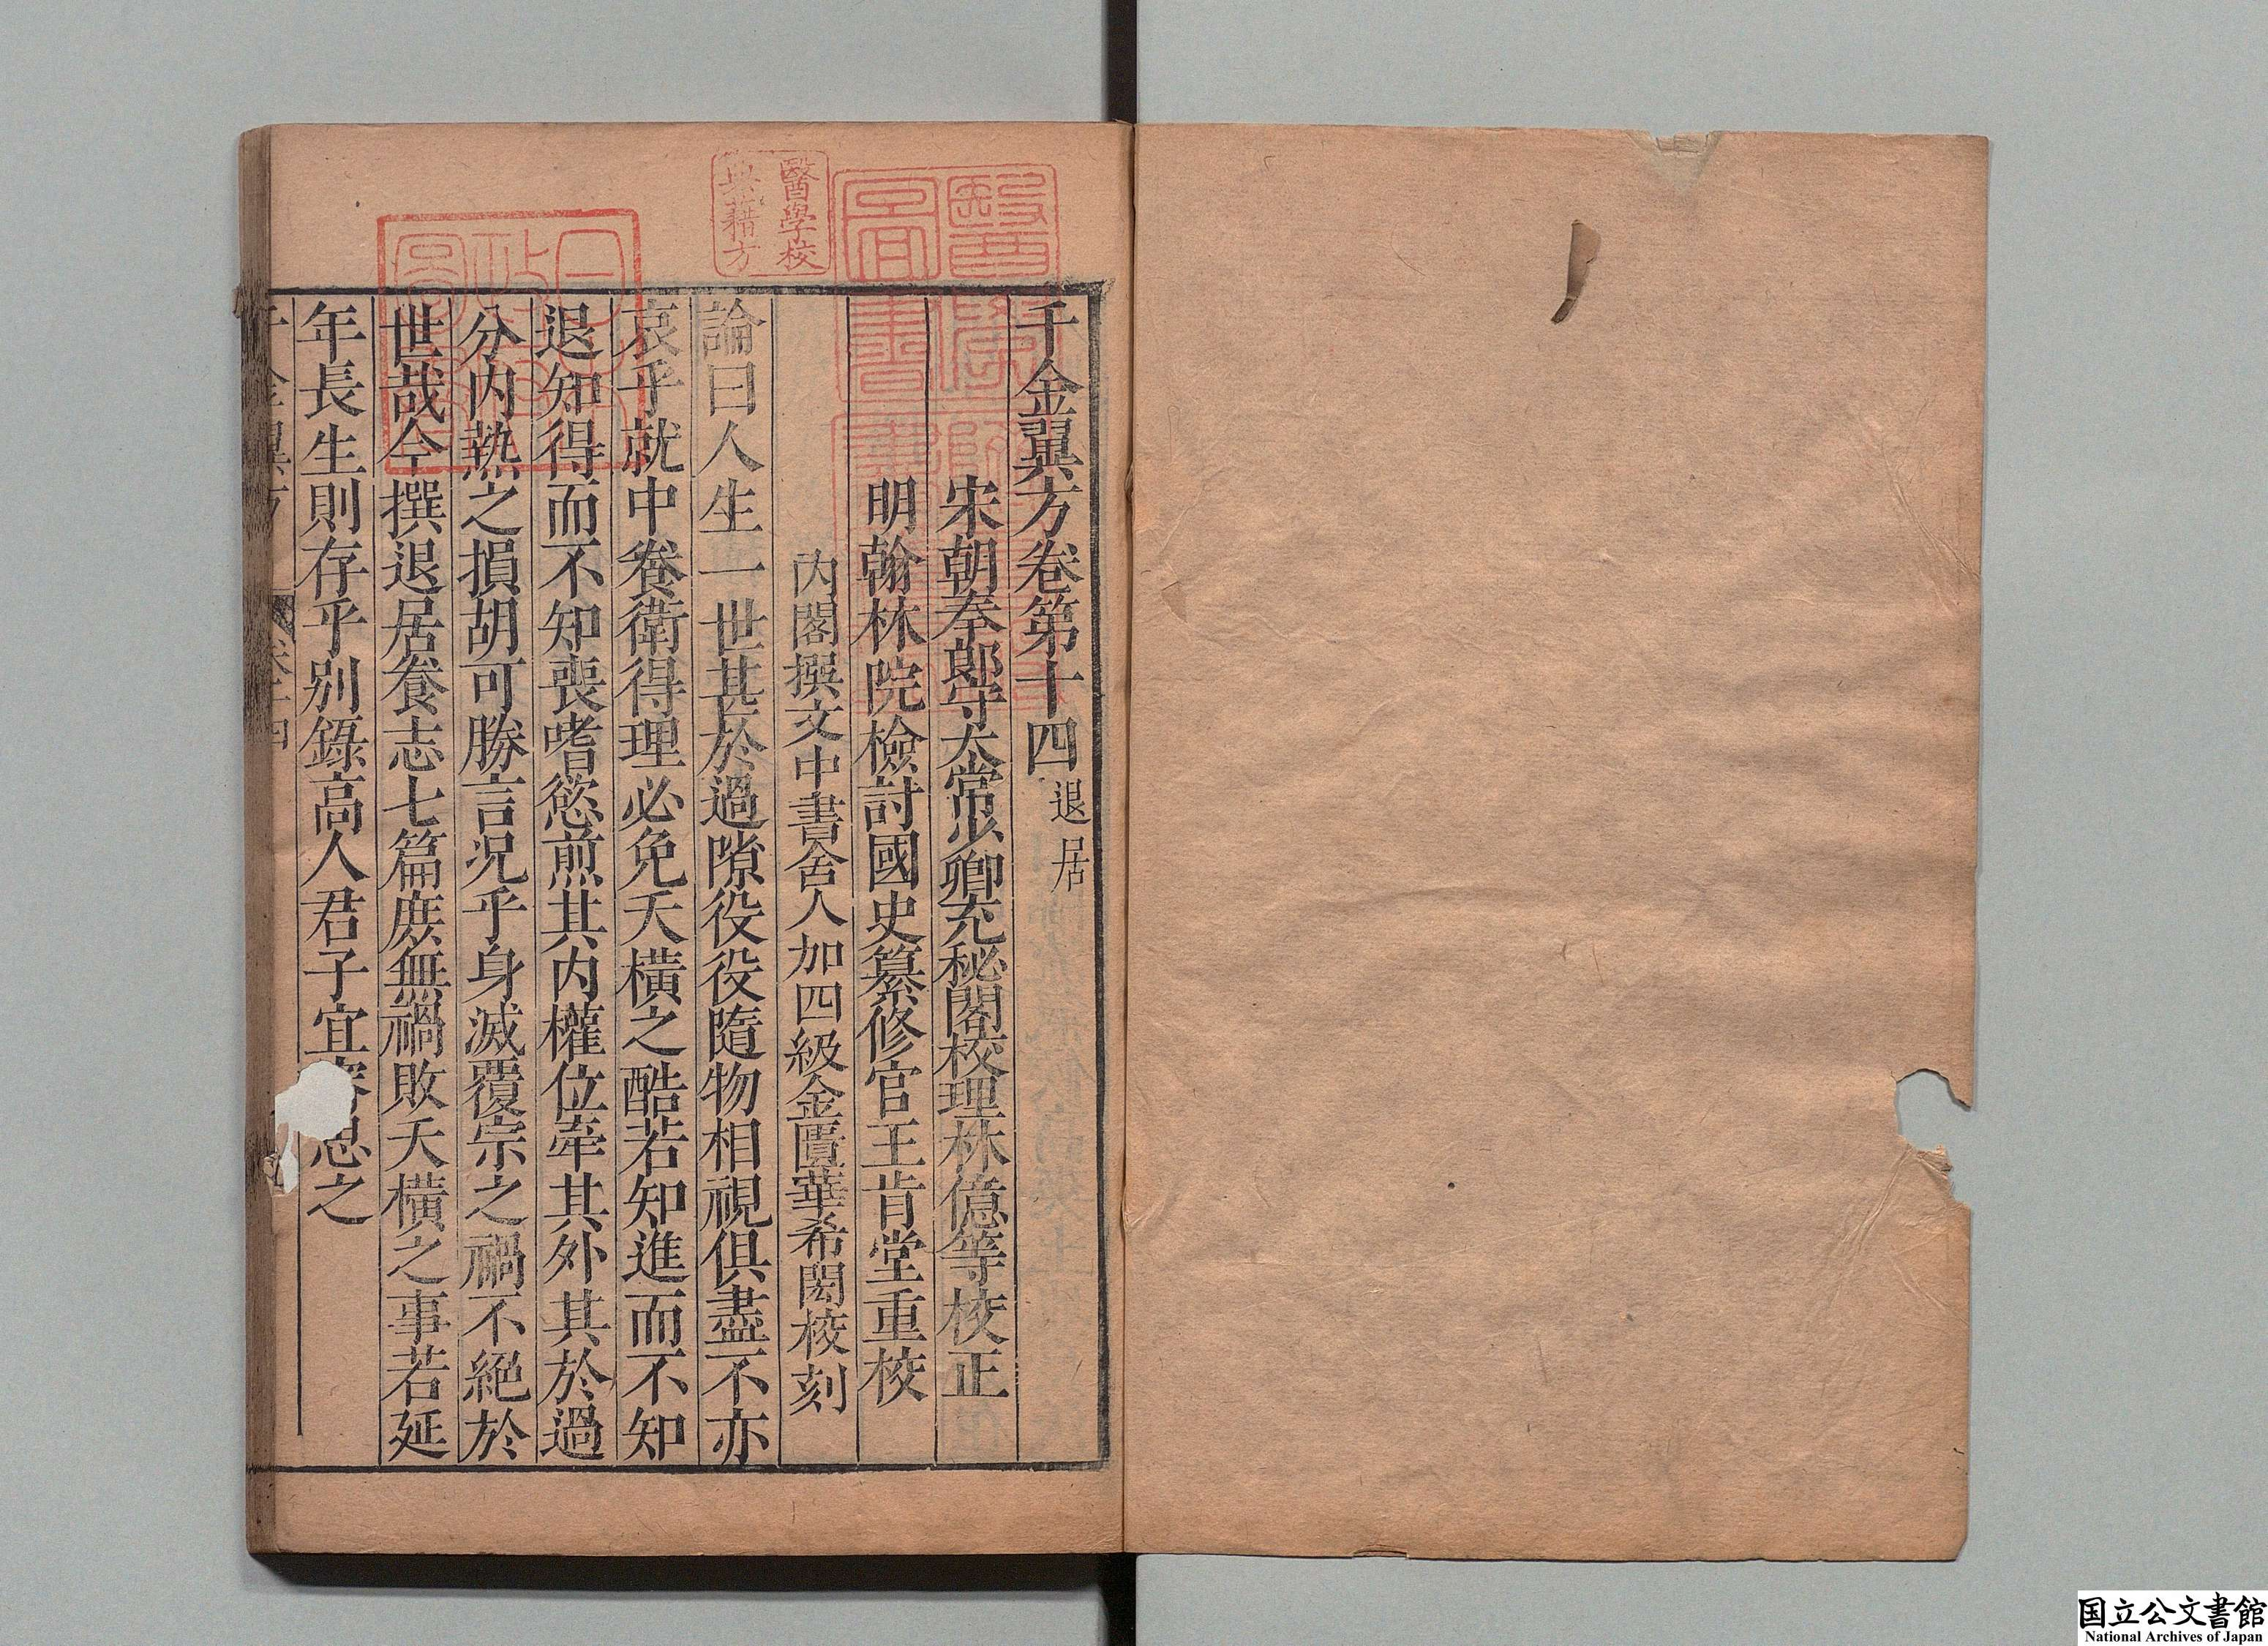 千金翼方卷第十四 退居
宋朝奉郎守太常少卿充秘閣校理林億等校正
明翰林院檢討國史纂修官王肯堂重校
內閣撰文中書舍人加四級金匱華希閎校刻
論曰人生一世甚於過隙役役隨物相視俱盡不亦
哀乎就中養衛得理必免夭橫之酷若知進而不知
退知得而不知喪嗜慾煎其內權位牽其外其於過
分內熱之損胡可勝言況乎身滅覆宗之禍不絕於
世哉今撰退居養志七篇庶無禍敗夭橫之事若延
年長生則存乎別錄高人君子宜審思之
醫學校
典藉方
国立公文書館
National Archives of Japan